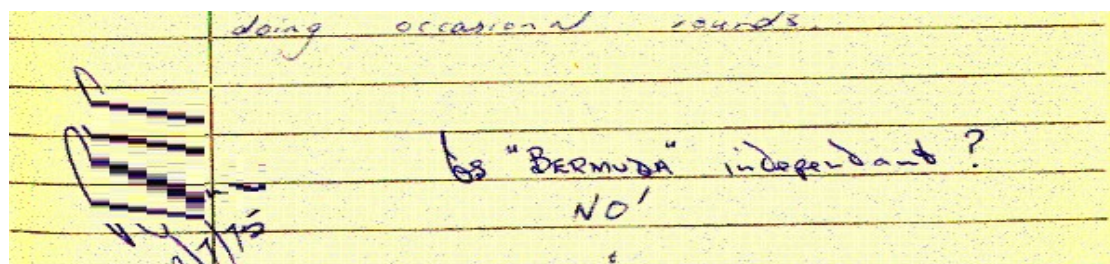 doing occasional rounds.
Is "BERMUDA" independant ?
NO!